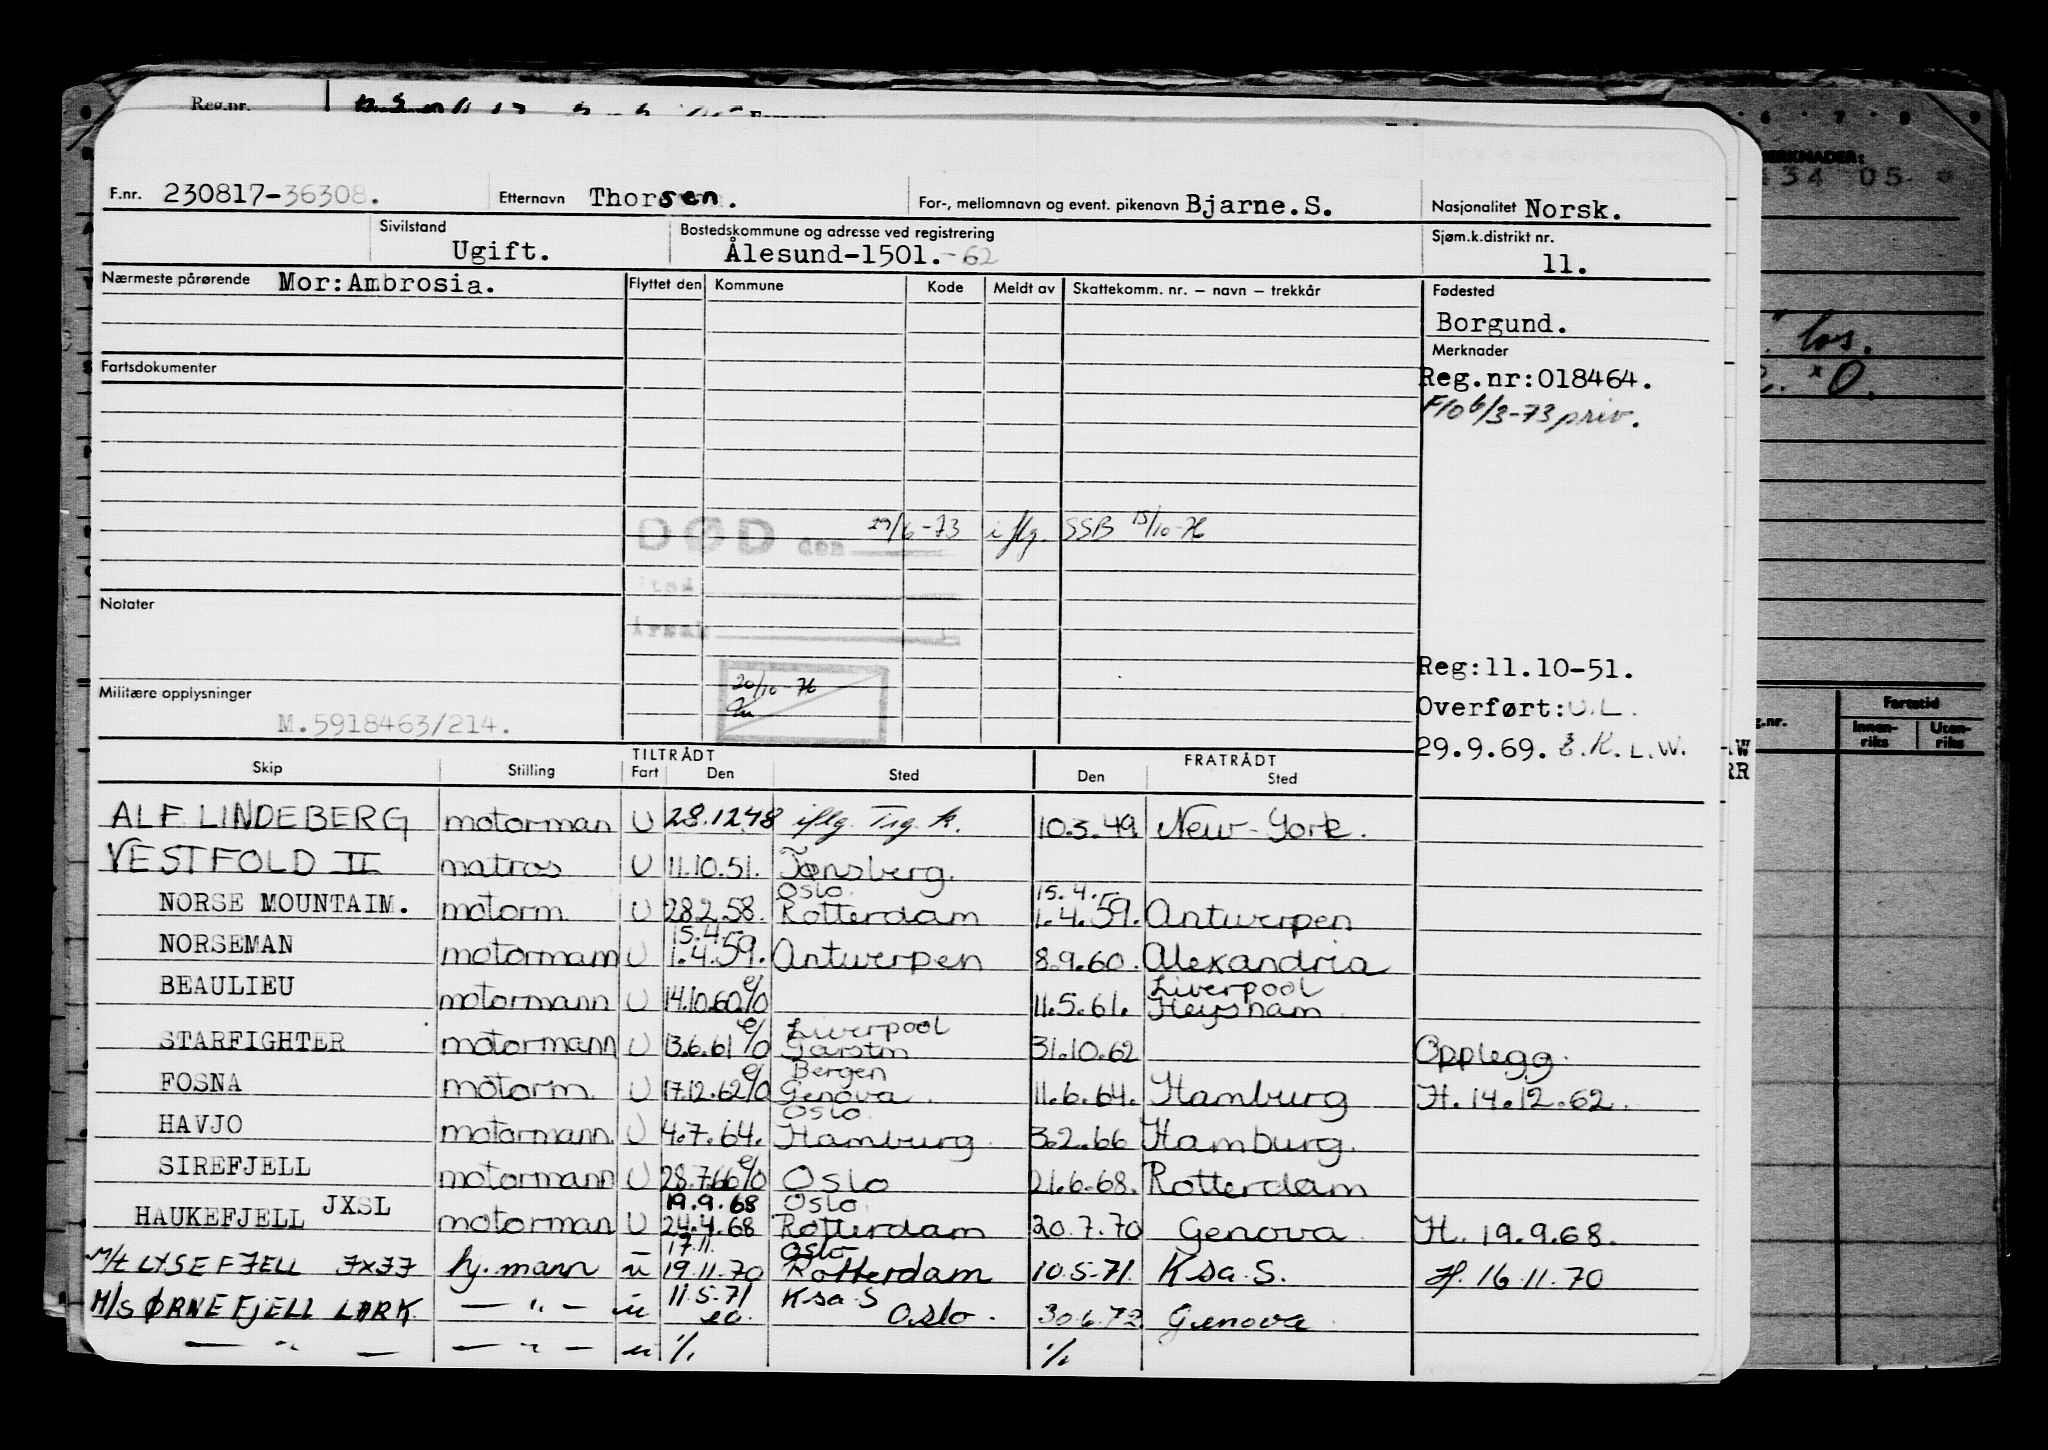 Reg.nr.
F.nr. 230817-36308. Etternavn Thorsen. For-, mellomnavn og event. pikenavn Bjarne.S. Nasjonalitet Norsk.
Sivilstand Ugift. Bostedskommune og adresse ved registrering Ålesund-1501.-62 Sjøm.k.distrikt nr. 11.
Nærmeste pårørende Mor:Ambrosia. Flyttet den Kommune Kode Meldt av Skattekomm. nr. – navn – trekkår Fødested
Borgund.
Merknader
Fartsdokumenter
Reg.nr:018464.
F/0 6/3-73 priv.
DØD den 29/6-73 iflg. SSB 15/10-76
Notater
Reg:11.10-51.
20/10-76
Militære opplysninger
M.5918463/214.
Overført:U.L.
29.9.69. E.K.L.W.
TILTRÅDT FRATRÅDT
Skip Stilling Fart Den Sted Den Sted
ALF LINDEBERG motorman U 28.12.48 iflg. Trg.k. 10.3.49. New-York.
VESTFOLD II matros U 11.10.51. Tønsberg.
Oslo. 15.4.-
NORSE MOUNTAIM. motorm. U 28.2.58. Rotterdam 1.4.59. Antwerpen
15.4.-
NORSEMAN motormann U 1.4.59. Antwerpen 8.9.60. Alexandria
Liverpool
BEAULIEU motormann U 14.10.60 e/o 11.5.61. Heysham
Liverpool
STARFIGHTER motormann U 13.6.61 e/o Garston 31.10.62 Opplegg.
Bergen
FOSNA motorm. U 17.12.62 e/o Genova. 11.6.64. Hamburg H. 14.12.62.
Oslo.
HAVJO motormann. U 4.7.64. Hamburg. 3.2.66 Hamburg.
SIREFJELL motormann U 28.7.66 e/o Oslo 21.6.68. Rotterdam
19.9.68 Oslo
HAUKEFJELL JXSL motorman U 24.4.68 Rotterdam 20.7.70 Genova. H. 19.9.68.
17.11. Oslo
M/t LYSEFJELL JXJJ hj.mann u 19.11.70 Rotterdam 10.5-71. Ksa.S. H. 16.11.70
11.5-71 Ksa S
M/S ØRNEFJELL LARK — " — u eo. Oslo. 30.6.72 Genova.
— " — — " — u 1/1 1/1
MERKNADER:
34 05
los.
Fartstid
g.nr. Innen-riks Uten-riks